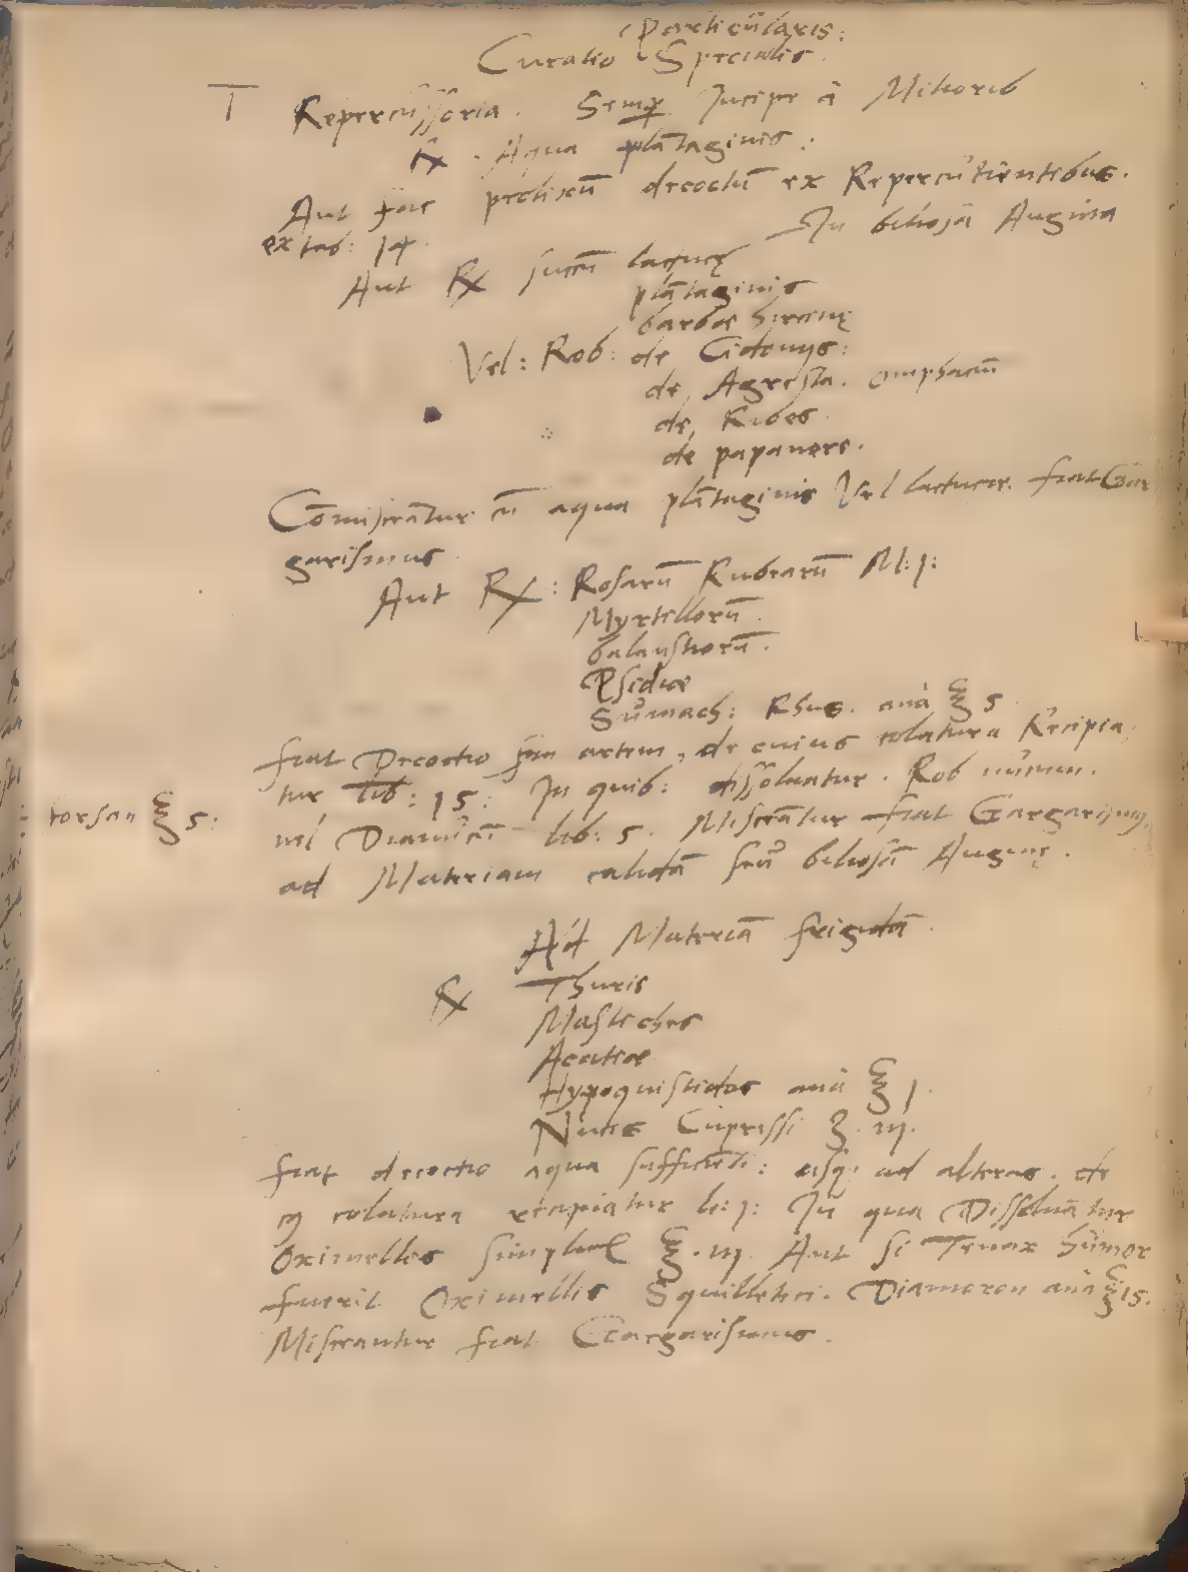 Particularis:
Curatio Specialis.
T Repercussoria. Semp Incipe à Mitiorib
℞. Aqua plātaginis:
Aut fac decoctū ex Repercutientibus.
ex tab: 14. In biliosā Angina
Aut ℞ succū lactucę
plātaginis
barbae hircinę
Vel: Rob: de Cidonijs:
de Agresta. omphaciū
de Ribes
de papauere.
Cōmisceātur cū aqua plātaginis Vel lactucae. fiat Gar
garismus
Aut ℞: Rosarū Rubrarū M: j:
Myrtillorū.
balaustiorū.
Psidiae
Sumach: Rhus. anà ℥ 5
fiat Decoctio artem, de cuius colatura Recipia,
tur lib: 15: In quib: dissoluatur. Rob nucum.
vel Diamicū lib: 5. Misceātur fiat Gargarismus
ad Materiam calidā seu biliosā Anginę.
Ad Materiā frigidā.
℞ Thuris
Mastiches
Acatiae
Hypoquistidos anà ℥ j.
Nuces Cupressi ʒ. iij.
fiat decoctio aqua sufficiēti: usq; ad alteras. de
colatura recipiatur li: j: In qua Dissoluātur
Oximelles ℥. iij. Aut si Tenax humor
fuerit Oximellis Squilletici. Diamoron anà ℥ 15.
Misceantur fiat Gargarismus.
℥ 5: